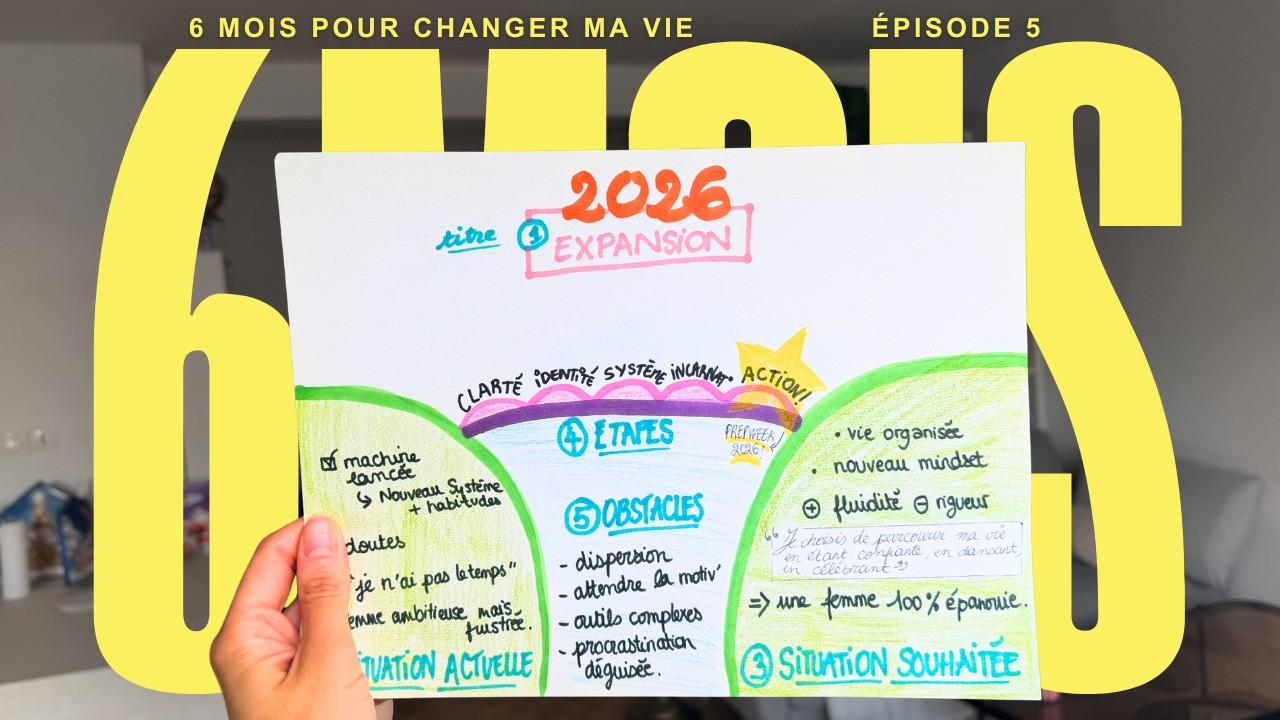 6 MOIS POUR CHANGER MA VIE
ÉPISODE 5
6 MOIS
2026
titre ① EXPANSION
CLARTÉ IDENTITÉ SYSTÈME INCARNAT° ACTION!
④ ETAPES
PREPWEEK
2026!
⑤ OBSTACLES
- dispersion
- attendre la motiv'
- outils complexes
- procrastination
déguisée.
☑ machine
lancée
↳ Nouveau Système
+ habitudes
doutes
"je n'ai pas le temps"
emme ambitieuse mais
frustrée.
ITUATION ACTUELLE
• vie organisée
• nouveau mindset
⊕ fluidité ⊖ rigueur
"Je choisis de parcourir ma vie
en étant confiante, en dansant,
en célébrant"
=> une femme 100% épanouie.
③ SITUATION SOUHAITÉE